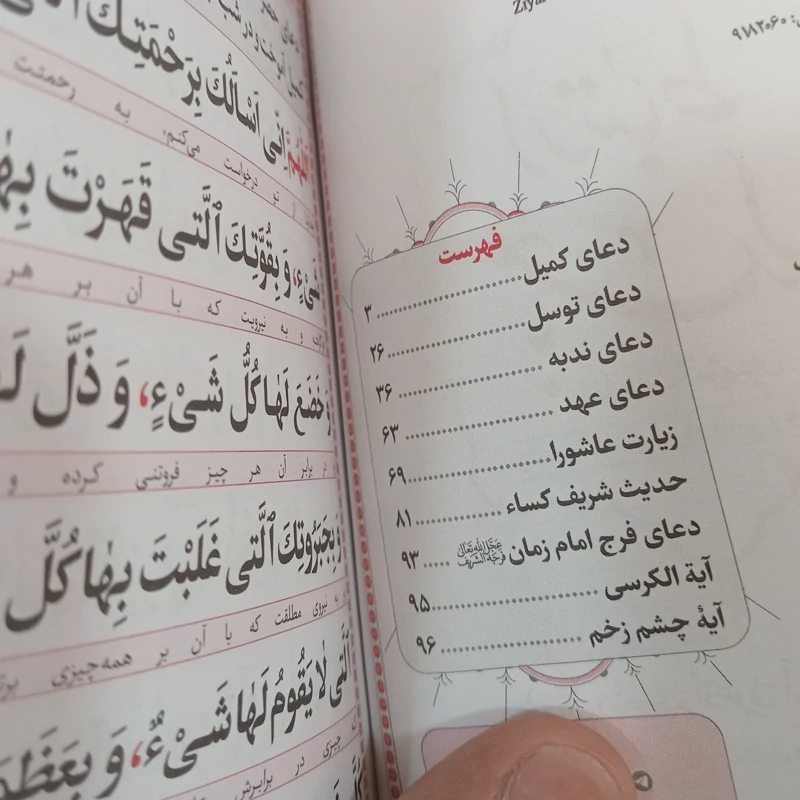 Ziya
۹۱۸۲۰۶۰
فهرست
دعای کمیل ۳
دعای توسل ۲۶
دعای ندبه ۳۶
دعای عهد ۶۳
زیارت عاشورا ۶۹
حدیث شریف کساء ۸۱
دعای فرج امام زمان عَجَّلَ اللهُ تَعَالی فَرَجَهُ الشَّریف ۹۳
آیة الکرسی ۹۵
آیۀ چشم زخم ۹۶
اِنّی اَسْأَلُكَ بِرَحْمَتِكَ
تو درخواست می‌کنم، به رحمتت
شَیْءٍ، وَ بِقُوَّتِكَ الَّتی قَهَرْتَ بِهٰا
و به نیرویت که با آن بر هر
وَ خَضَعَ لَهٰا كُلُّ شَیْءٍ، وَ ذَلَّ
در برابر آن هر چیز فروتنی کرده و
وَ بِجَبَرُوتِكَ الَّتی غَلَبْتَ بِهٰا كُلَّ
به نیروی مطلقت که با آن بر همه‌چیزی
الَّتی لٰا یَقُومُ لَهٰا شَیْءٌ، وَ بِعَظَمَ
چیزی در برابرش